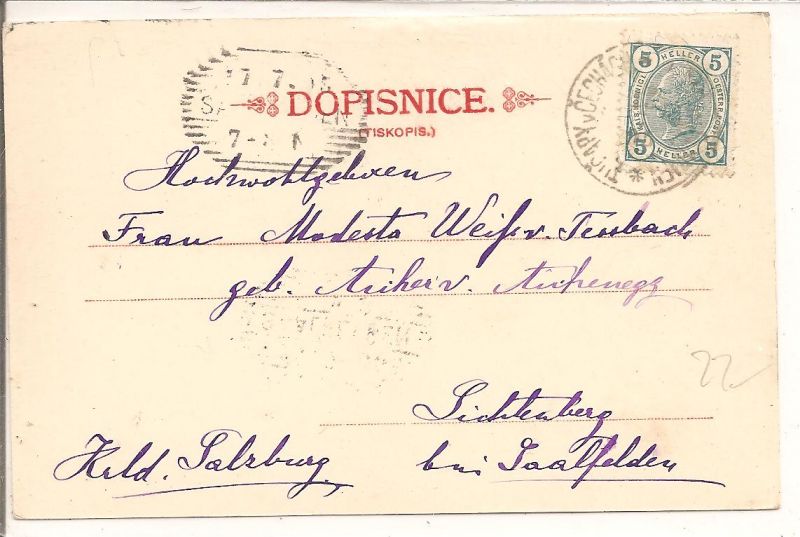 DOPISNICE.
(TISKOPIS.)
5 HELLER 5
5 HELLER 5
17 7
7-8
Hochwohlgeboren
Frau Modesta Weiß v. Teßbach
geb. Aicher v. Aichenegg
Lichtenberg
Krld. Salzburg bei Saalfelden
22